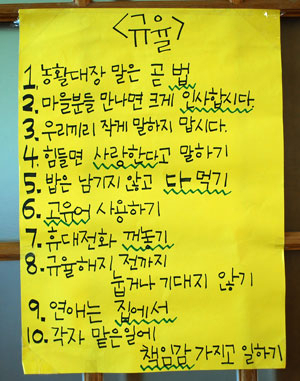 <규율>
1. 농활대장 말은 곧 법
2. 마을분들 만나면 크게 인사합시다.
3. 우리끼리 작게 말하지 맙시다.
4. 힘들면 사랑한다고 말하기
5. 밥은 남기지 않고 다 먹기
6. 고유어 사용하기
7. 휴대전화 꺼놓기
8. 규율해지 전까지
눕거나 기대지 않기
9. 연애는 집에서
10. 각자 맡은일에
책임감 가지고 일하기